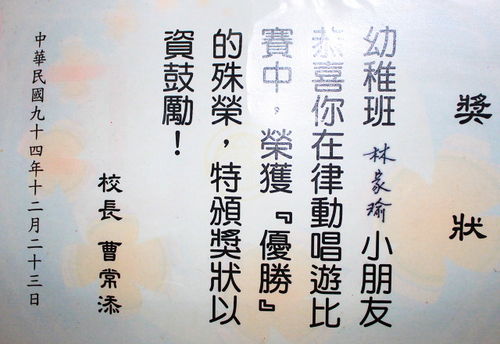 獎狀
幼稚班 林家瑜 小朋友
恭喜你在律動唱遊比
賽中，榮獲『優勝』
的殊榮，特頒獎狀以
資鼓勵！
校長 曹常添
中華民國九十四年十二月二十三日